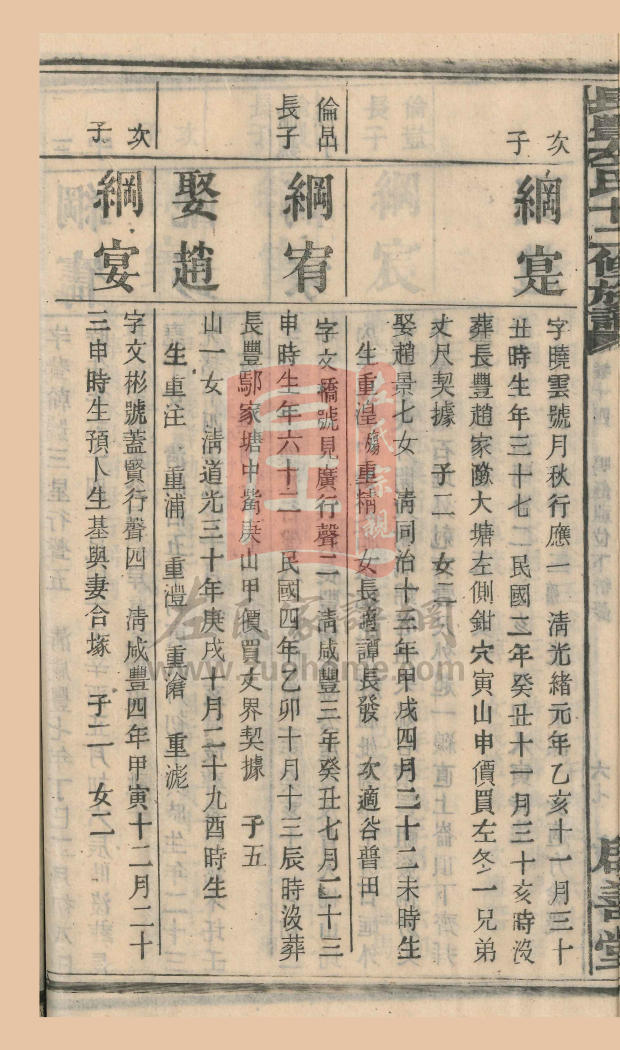 長豐左氏十二修族譜
啟善堂
次子
綱寔
字曉雲號月秋行應一 清光緒元年乙亥十一月三十
丑時生年三十七二民國二年癸丑十一月三十亥時沒
葬長豐趙家隊大塘左側鉗穴寅山申價買左冬一兄弟
丈尺契據 子二 女二
娶趙景七女 清同治十三年甲戌四月二十二未時生
生重湟 殤重精 女長適譚長發 次適谷普田
倫品長子
綱宥
字文橋號見廣行聲二 清咸豐三年癸丑七月二十三
申時生年六十二 民國四年乙卯十月十三辰時沒葬
長豐鄢家塘中嘴庚山甲價買丈界契據 子五
娶趙
山一女 清道光三十年庚戌十月二十九酉時生
生重注 重浦 重澧 重滄 重滮
次子
綱宴
字文彬號蓋賢行聲四 清咸豐四年甲寅十二月二十
三申時生預卜生基與妻合塚 子二 女二
左氏家譜網
www.zuohome.com